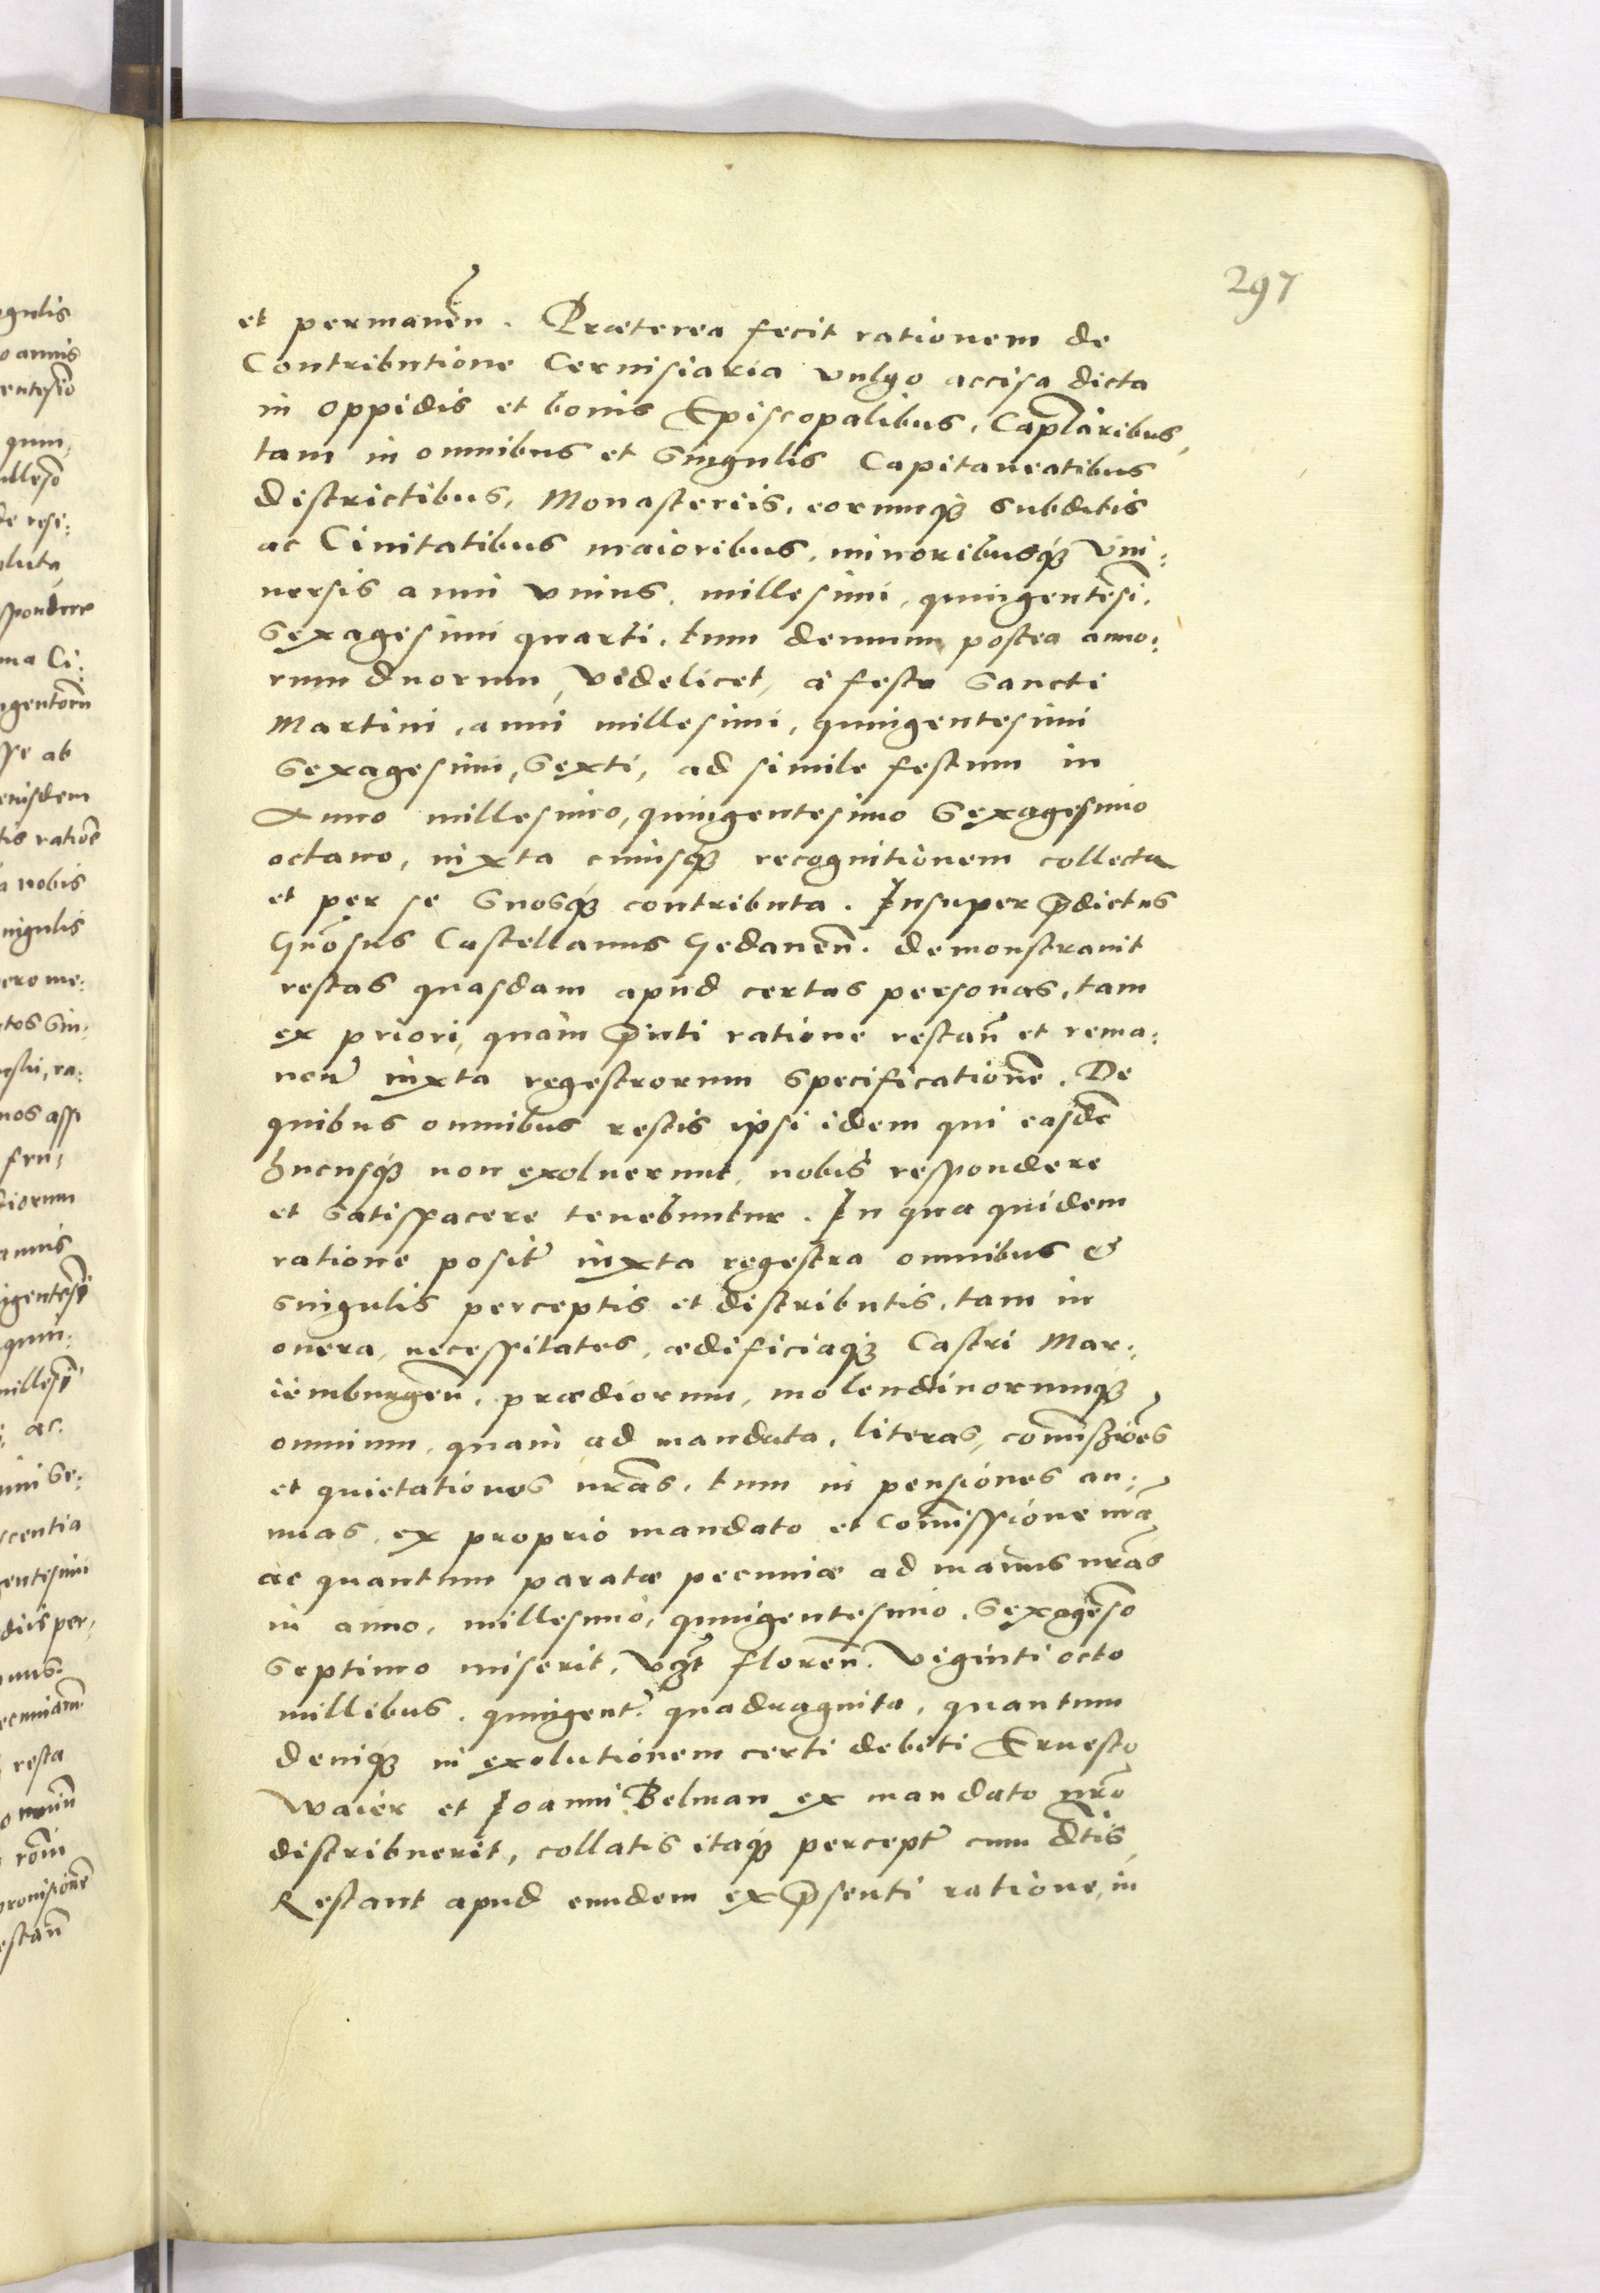 297
et permanen̄. Præterea fecit rationem de
Contributione Ceruisiaria vulgo accisa dicta
in oppidis et bonis Episcopalibus, Caplaribus,
tam in omnibus et singulis Capitaneatibus
districtibus, Monasteriis, eorumq₃ subditis
ac Ciuitatibus maioribus, minoribusq₃ vni:
uersis anni vnius, millesimi, quingentesi,
sexagesimi quarti, tum demum postea anno:
rum duorum, videlicet, a festo Sancti
Martini, anni millesimi, quingentesimi
sexagesimi, sexti, ad simile festum in
Anno millesimo, quingentesimo sexagesimo
octauo, iuxta cuiusq₃ recognitionem collecta
et per se suosq₃ contributa. Insuper p̄dictus
Gn̄osus Castellanus Gedanen̄. demonstrauit
restas quasdam apud certas personas, tam
ex priori, quàm p̄nti ratione restan̄ et rema:
nen̄ iuxta regestrorum specificationē. De
quibus omnibus restis ipsi idem qui easdē
hucusq₃ non exoluerunt, nobis respondere
et satisfacere tenebuntur. In qua quidem
ratione posit̄ iuxta regestra omnibus &
singulis perceptis et distributis, tam in
onera, necessitates, ædificiaq₃ Castri Mar:
iemburgen̄, prædiorum, molendinorumq₃
omnium, quàm ad mandata, literas, com̄iss̄iōes
et quietationes nr̄as, tum in pensiones an:
nuas, ex proprio mandato et com̄issione nr̄a
ac quantum paratæ pecuniæ ad manus nr̄as
in anno, millesimo, quingentesimo, sexagēso
septimo miserit, vcz̄t floren̄. viginti octo
millibus, quingent̄. quadraginta, quantum
deniq₃ in exolutionem certi debiti Ernesto
Waier et Joanni Belman ex mandato nr̄o
distribuerit, collatis itaq₃ percept̄ cum d̄tis
Restant apud eundem ex p̄senti ratione, in